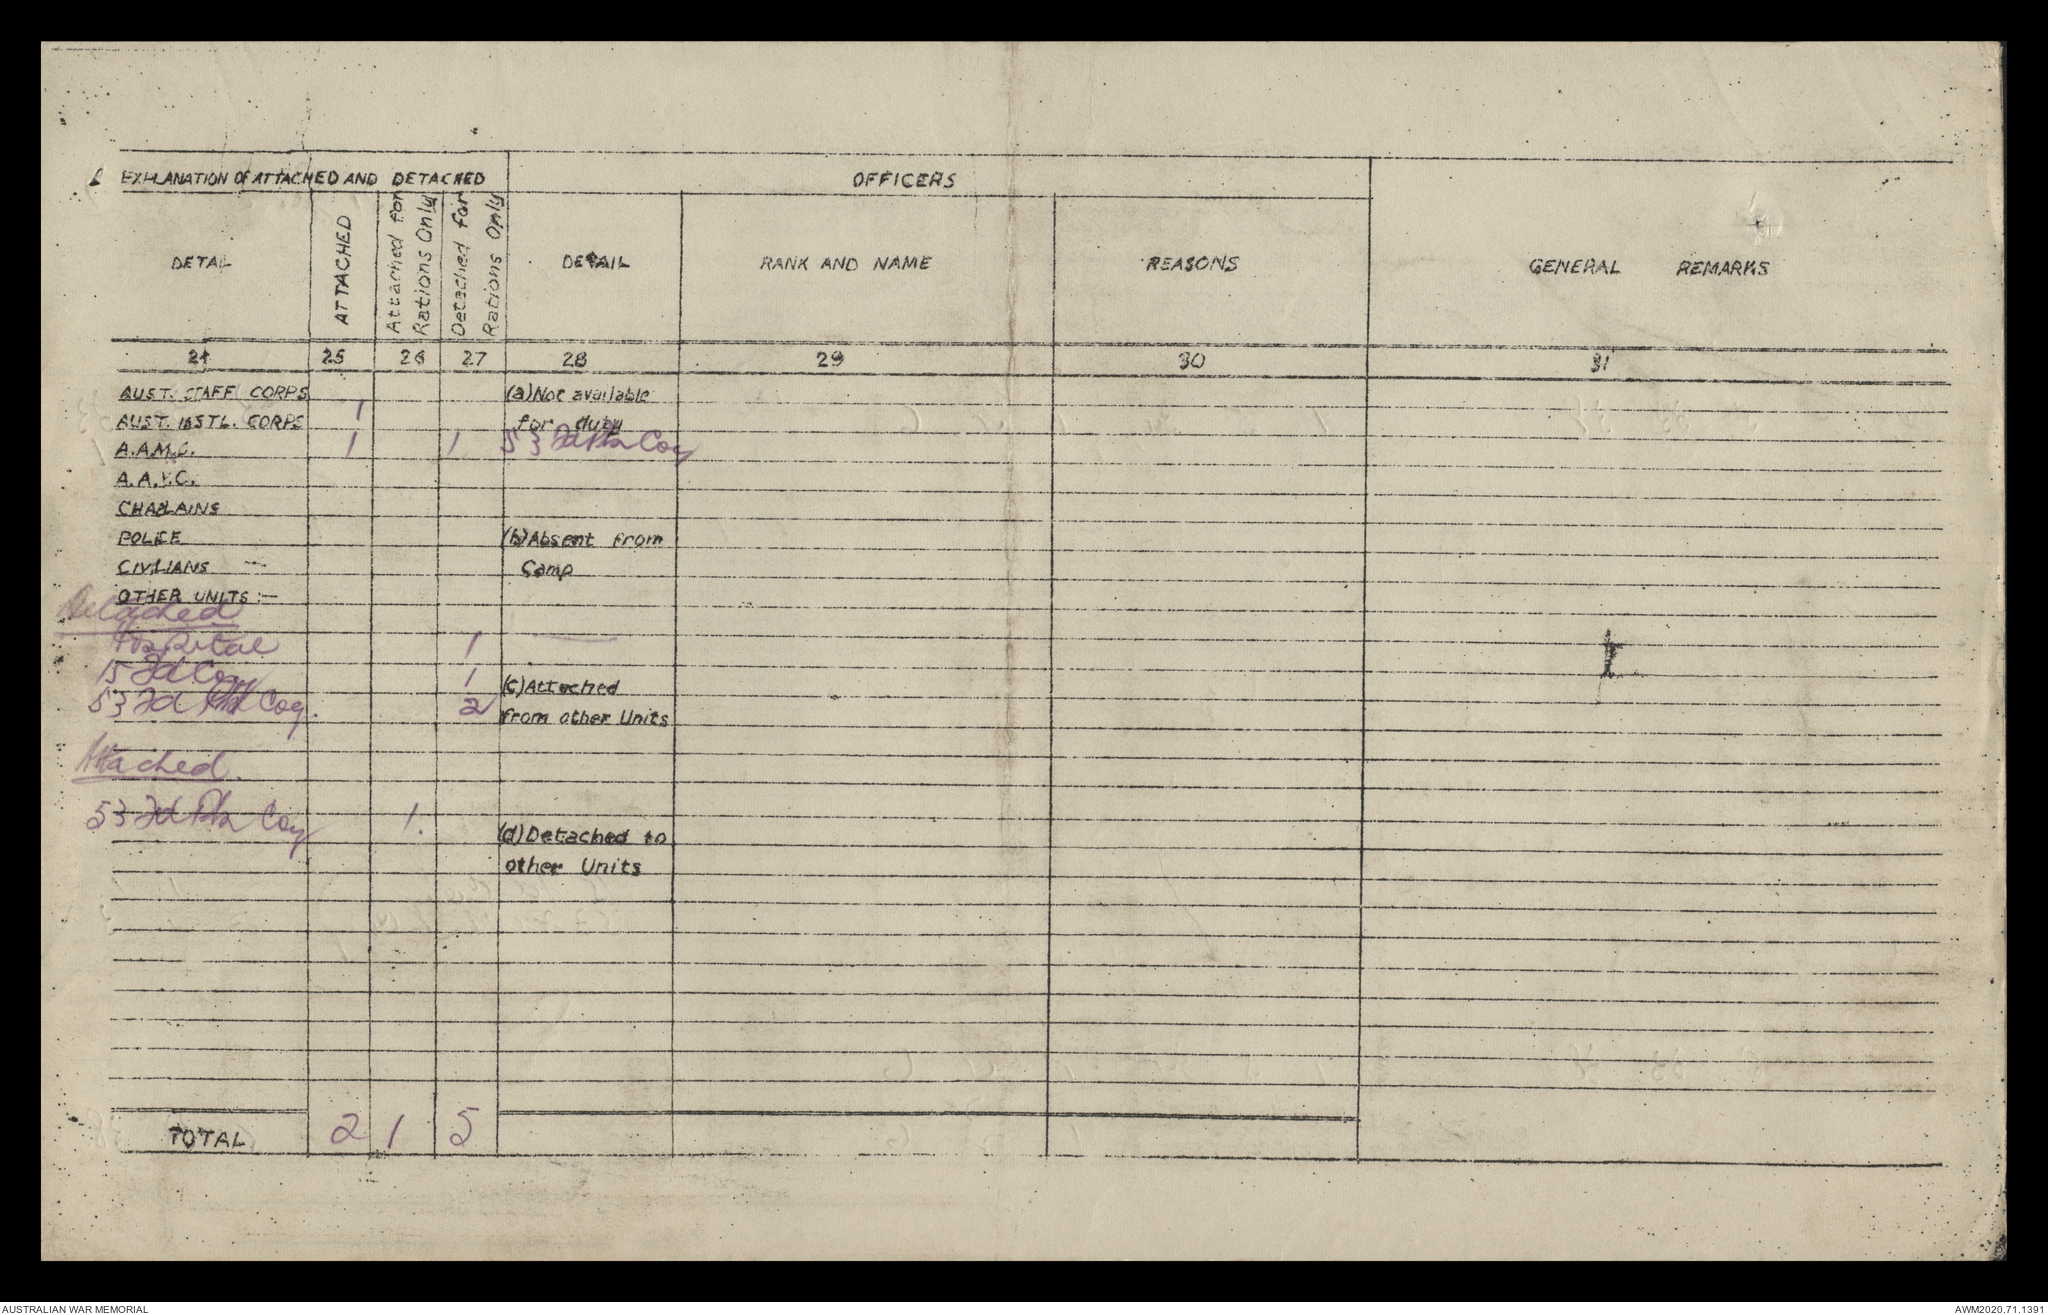 EXPLANATION OF ATTACHED AND DETACHED OFFICERS
DETAIL ATTACHED Attached for Rations Only Detached for Rations Only DETAIL RANK AND NAME REASONS GENERAL REMARKS
24 25 26 27 28 29 30 31
AUST. STAFF CORPS (a) Not available
AUST. INSTL. CORPS 1 for duty
A.A.M.C. 1 1 53 Fd Pk Coy
A.A.V.C.
CHAPLAINS
POLICE (b) Absent from
CIVILIANS Camp
OTHER UNITS :-
Detached
Hospital 1
15 Fd Coy 1 (c) Attached
53 Fd Coy. 2 from other Units
Attached.
53 Fd Pk Coy 1. (d) Detached to
other Units
TOTAL 2 1 5
AUSTRALIAN WAR MEMORIAL AWM2020.71.1391